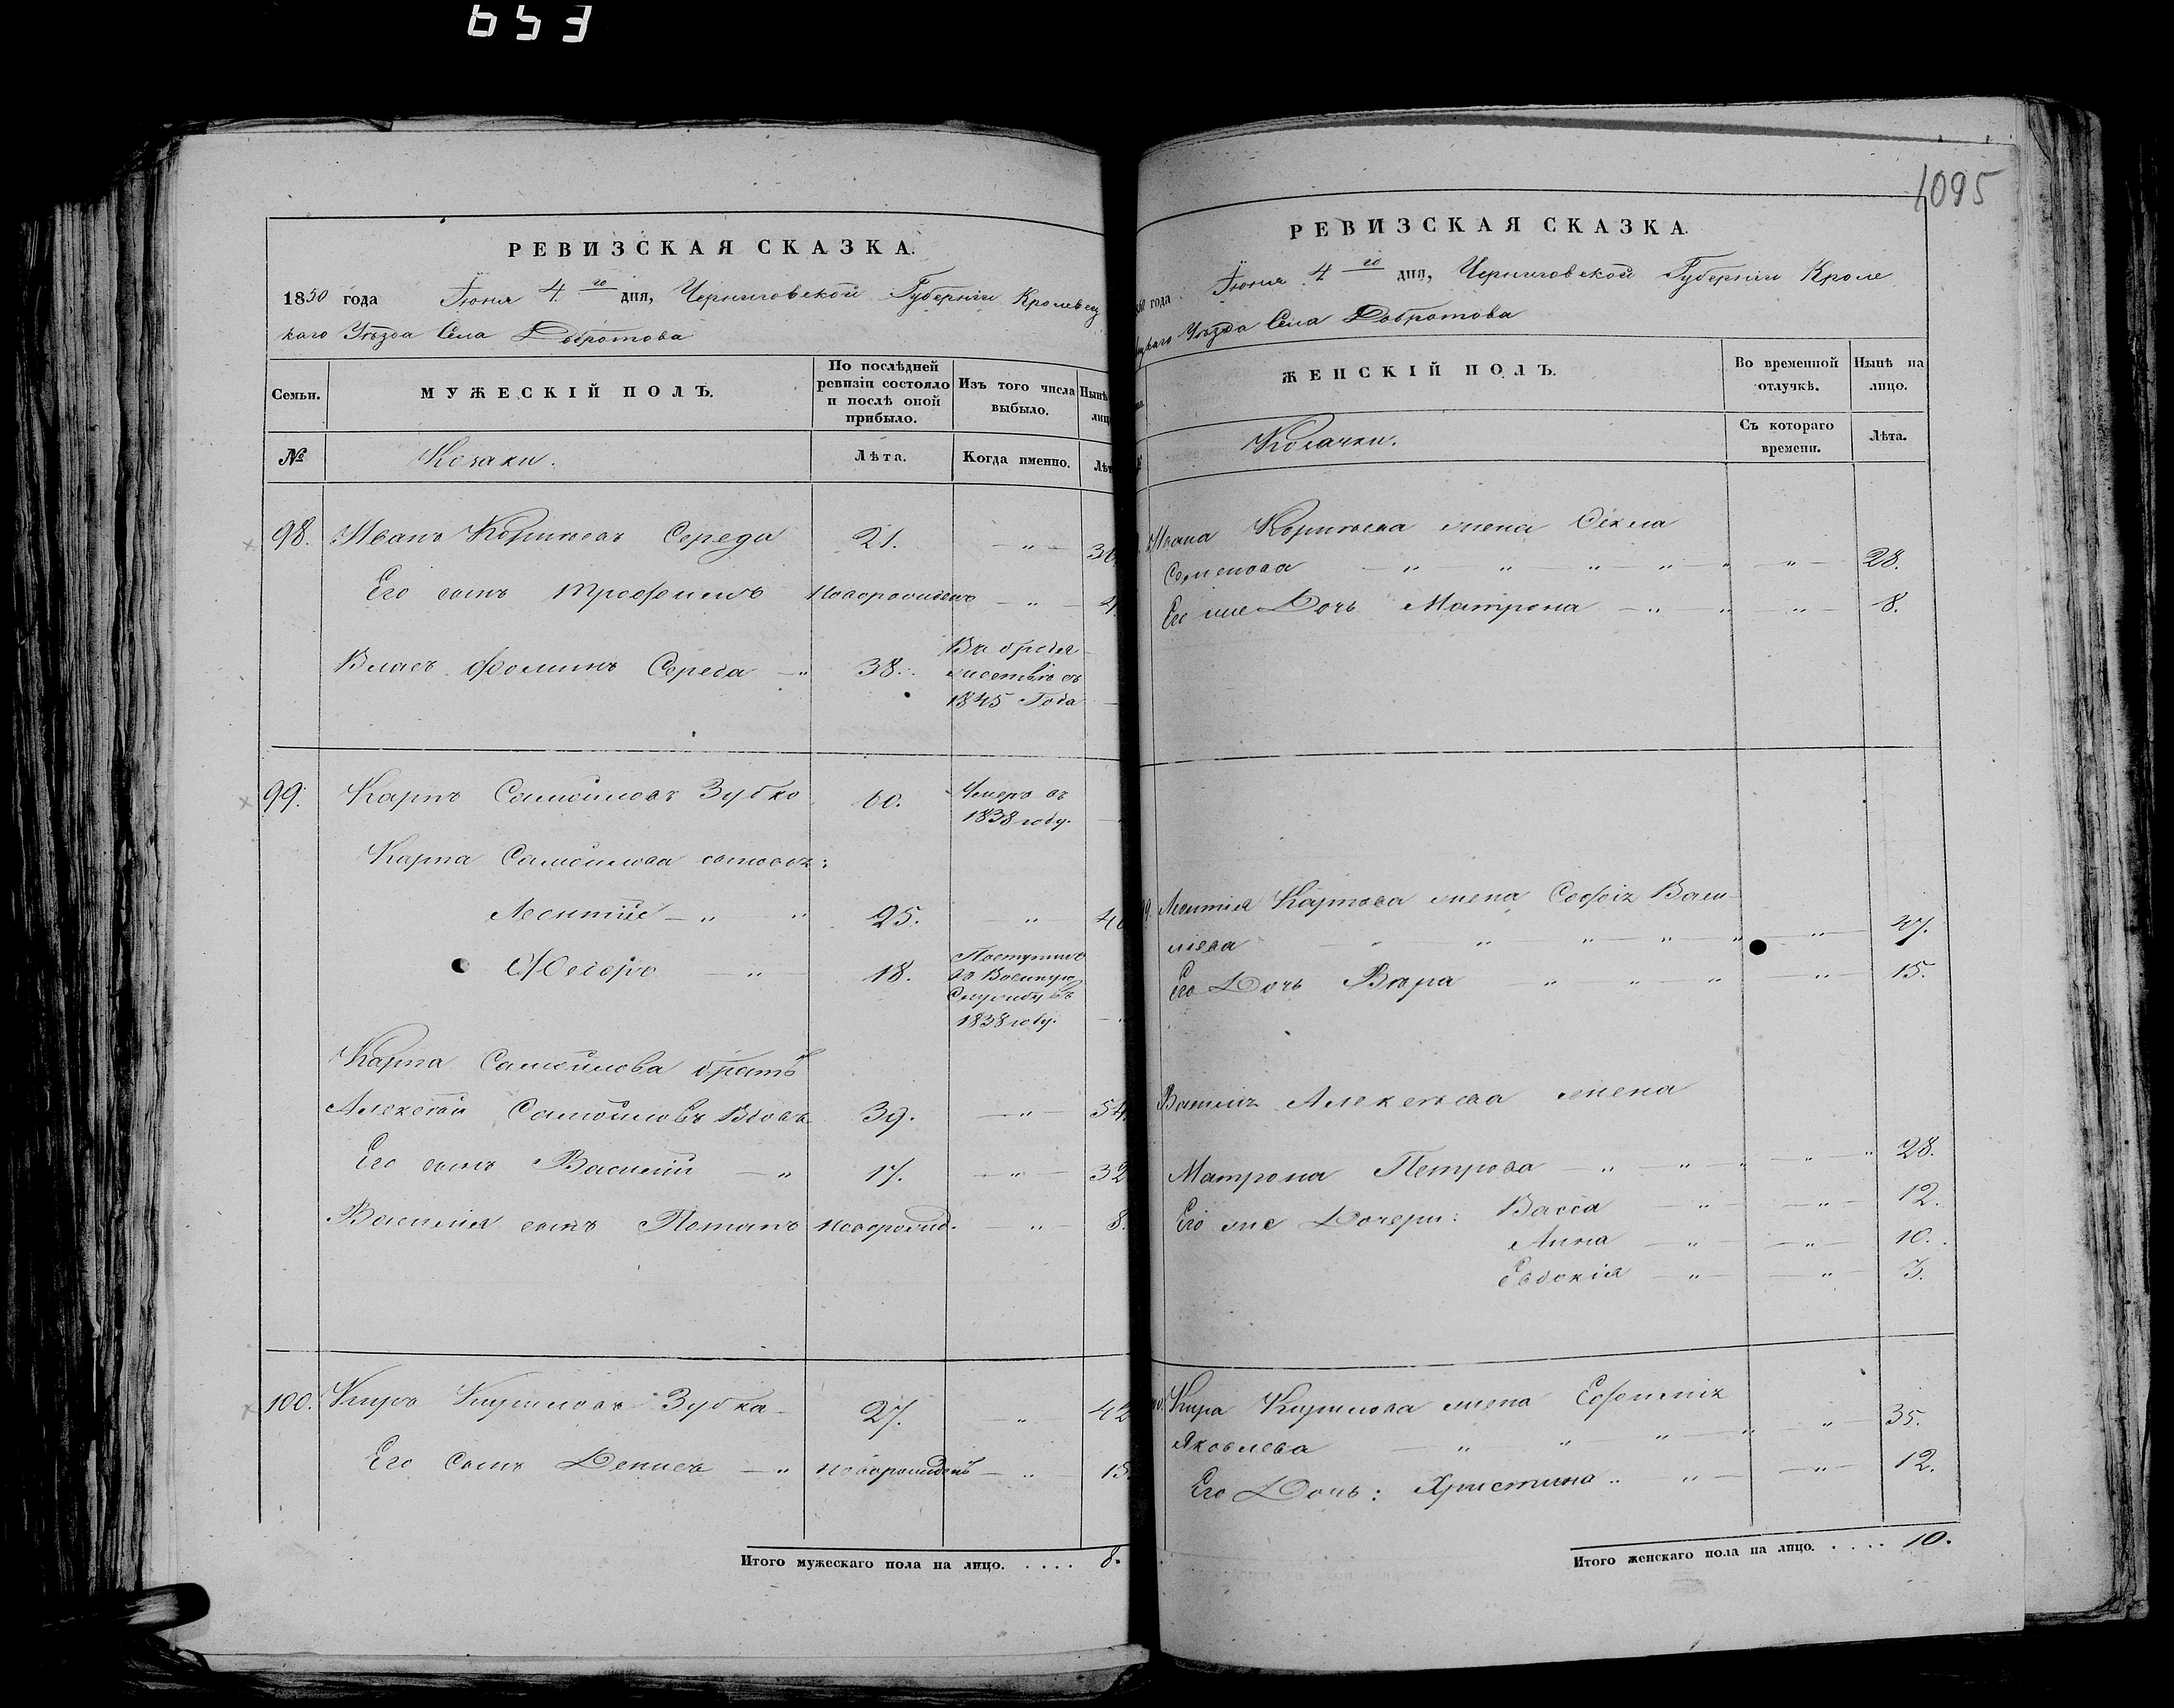 653
РЕВИЗСКАЯ СКАЗКА.
1850 года Іюня 4го дня, Черниговской Губерніи Кролевец
каго Уѣзда Села Добротова
Семьи.
МУЖЕСКІЙ ПОЛЪ.
По послѣдней ревизіи состояло и послѣ оной прибыло.
Изъ того числа выбыло.
Нынѣ
лиц
№
Козаки.
Лѣта.
Когда именно.
Лѣт
98. Иванъ Корнѣевъ Середа 21. — „ —
Его сынъ Трофимъ новорожденъ — „ — 4.
Власъ Фоминъ Середа — „ 38.
1845 Года
99. Карпъ Самойловъ Зубко 60. Умеръ въ
1838 году.
Карпа Самойлова сыновья:
Леонтій — „ „ 25. — „
Ѳедоръ — „ — 18. Поступилъ
въ Военную
Службу въ
1838 году.
Карпа Самойлова братъ
Алексѣй Самойловъ Вдовъ 39. — „ — 54.
Его сынъ Василій — „ 17. — „ — 32
Василія сынъ Потапъ новорожд. — „ — 8.
100. Киръ Кириловъ Зубка 27. — „ 42
Его Сынъ Денисъ — „ новорожденъ — „ — 15
Итого мужескаго пола на лицо. . . . . 8.
1095
РЕВИЗСКАЯ СКАЗКА.
года Іюня 4го дня, Черниговской Губерніи Кроле
цкаго Уѣзда Села Добротова
ЖЕНСКІЙ ПОЛЪ.
Во временной отлучкѣ.
Нынѣ на лицо.
Козачки.
Съ котораго времени.
Лѣта.
Ивана Корнѣева жена Ѳекла
Семенова — „ „ — „ — „ „ — „ — 28.
Его же Дочь Матрона — „ „ „ — 8.
Леонтія Карпова жена Софія Васи-
лiева — „ „ „ „ „ — „ — 47.
Его Дочь Вѣра — „ „ „ — „ — 15.
Василія Алексѣева жена
Матрона Петрова — „ — „ „ — „ — „ 28.
Его же Дочери: Васса — „ — „ — 12.
Анна — „ — — „ — 10.
Евдокія — „ — — „ — 3.
Кира Кирилова жена Евфимія
Яковлева — „ „ „ „ — „ — 35.
Его Дочь: Христина „ „ — — „ — 12.
Итого женскаго пола на лицо. . . . . 10.